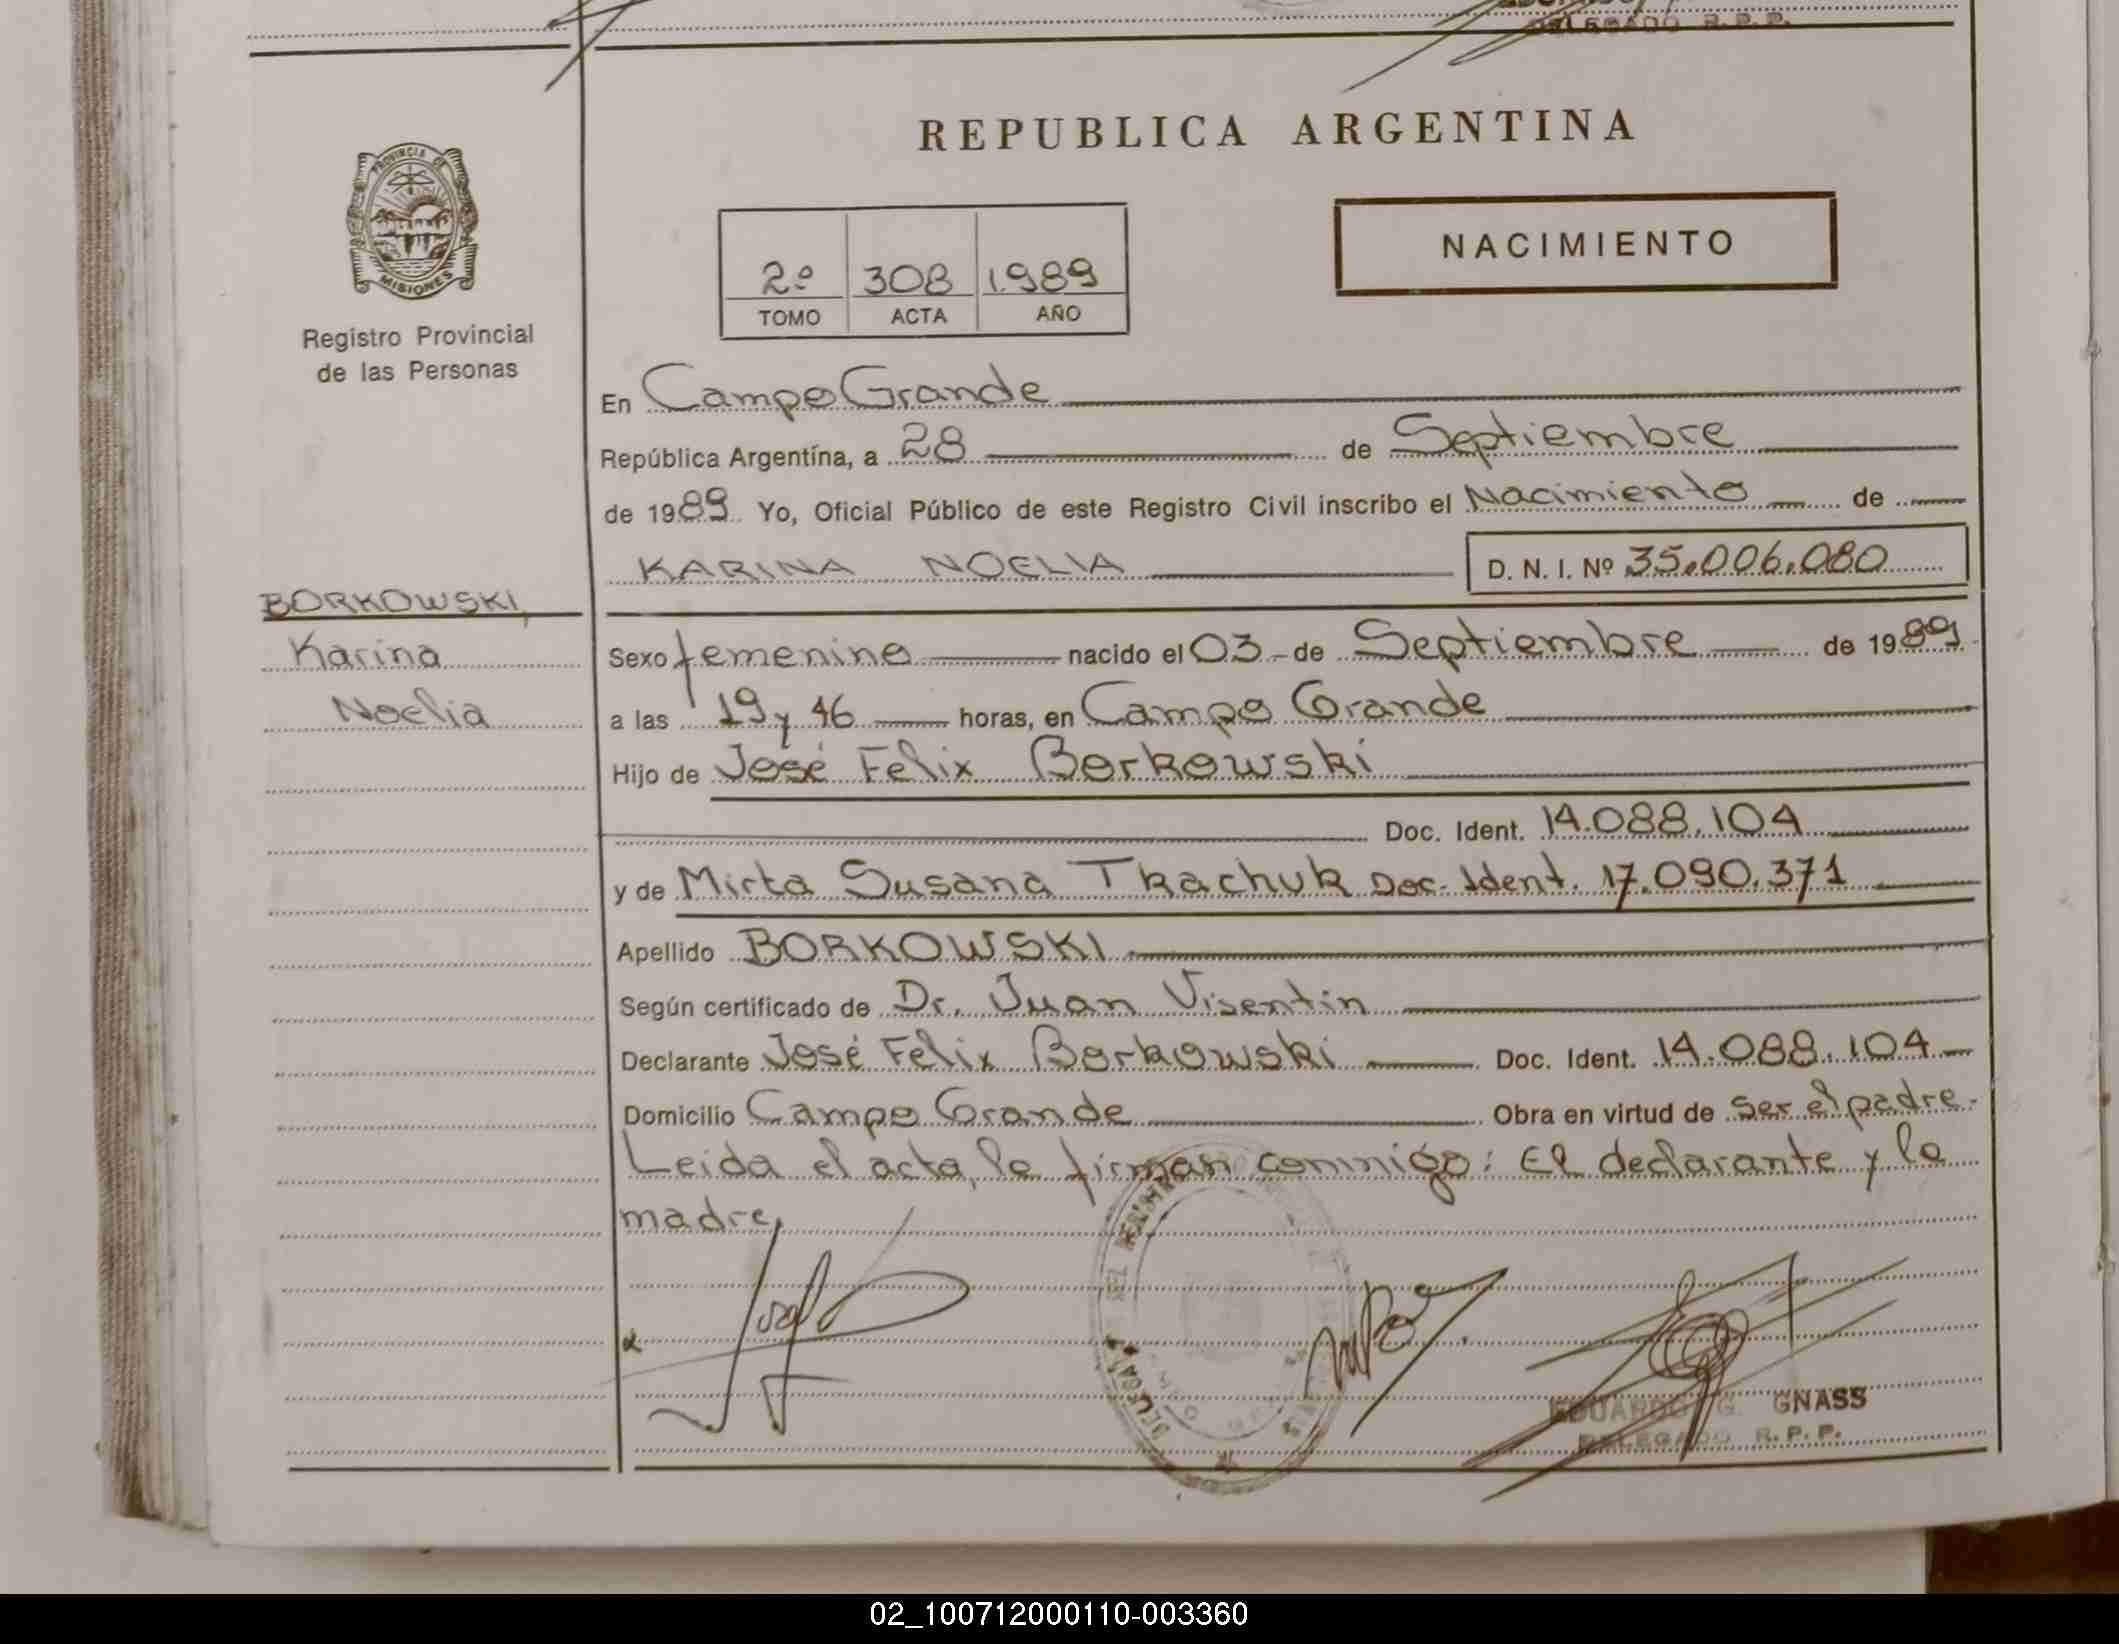 DELEGADO R.P.P.
REPUBLICA ARGENTINA
PROVINCIA DE
MISIONES
Registro Provincial
de las Personas
2º 308 1.989
TOMO ACTA AÑO
NACIMIENTO
En Campo Grande
República Argentina, a 28 de Septiembre
de 1989 Yo, Oficial Público de este Registro Civil inscribo el Nacimiento de
KARINA NOELIA D. N. I. Nº 35.006.080
BORKOWSKI,
Karina
Noelia
Sexo femenino nacido el 03 de Septiembre de 1989
a las 19 y 46 horas, en Campo Grande
Hijo de José Felix Borkowski
Doc. Ident. 14.088.104
y de Mirta Susana Tkachuk Doc. Ident. 17.090.371
Apellido BORKOWSKI
Según certificado de Dr. Juan Visentin
Declarante José Felix Borkowski Doc. Ident. 14.088.104
Domicilio Campo Grande Obra en virtud de ser el padre.
Leida el acta, la firman conmigo: El declarante y la
madre,
EDUARDO G. GNASS
DELEGADO R.P.P.
02_100712000110-003360